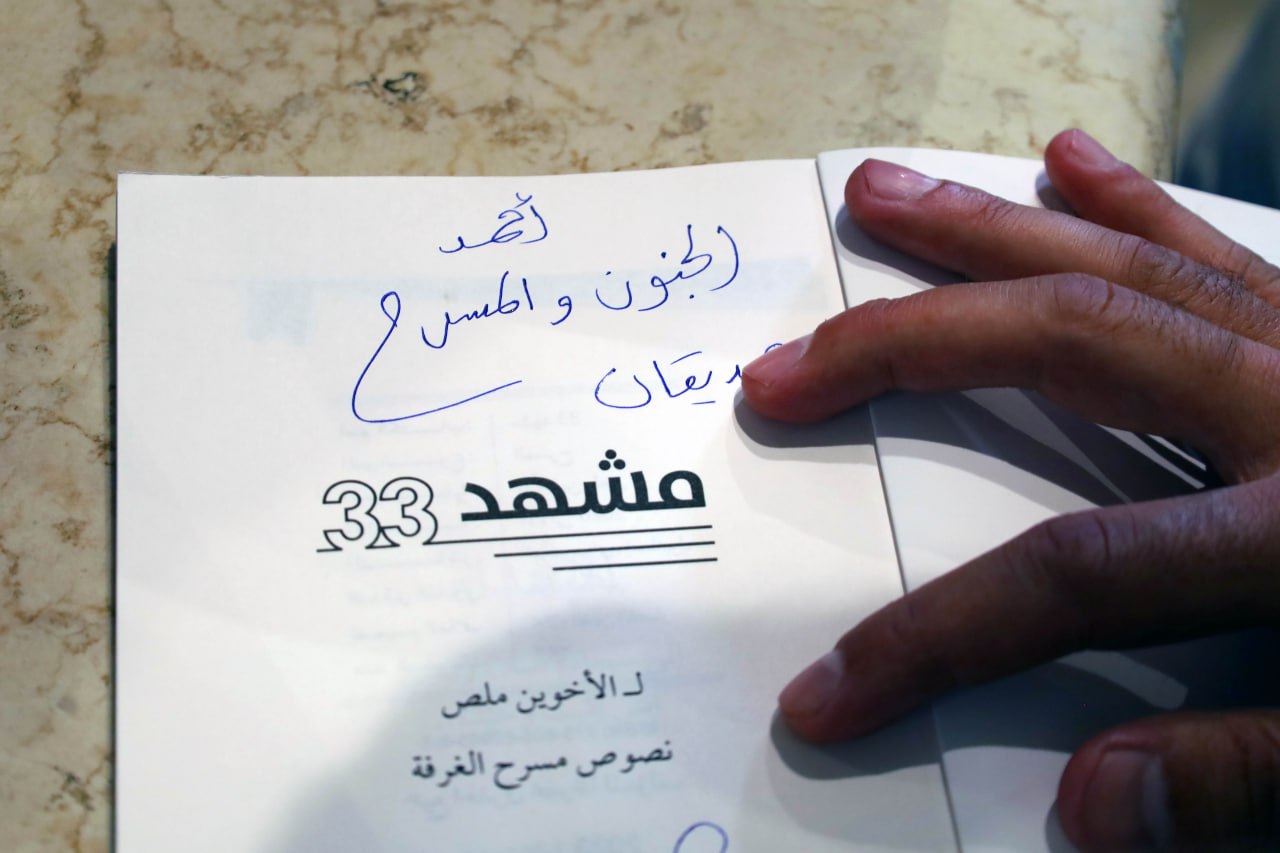 أحمد
الجنون و المسرح
صديقان
مشهد 33
لـ الأخوين ملص
نصوص مسرح الغرفة